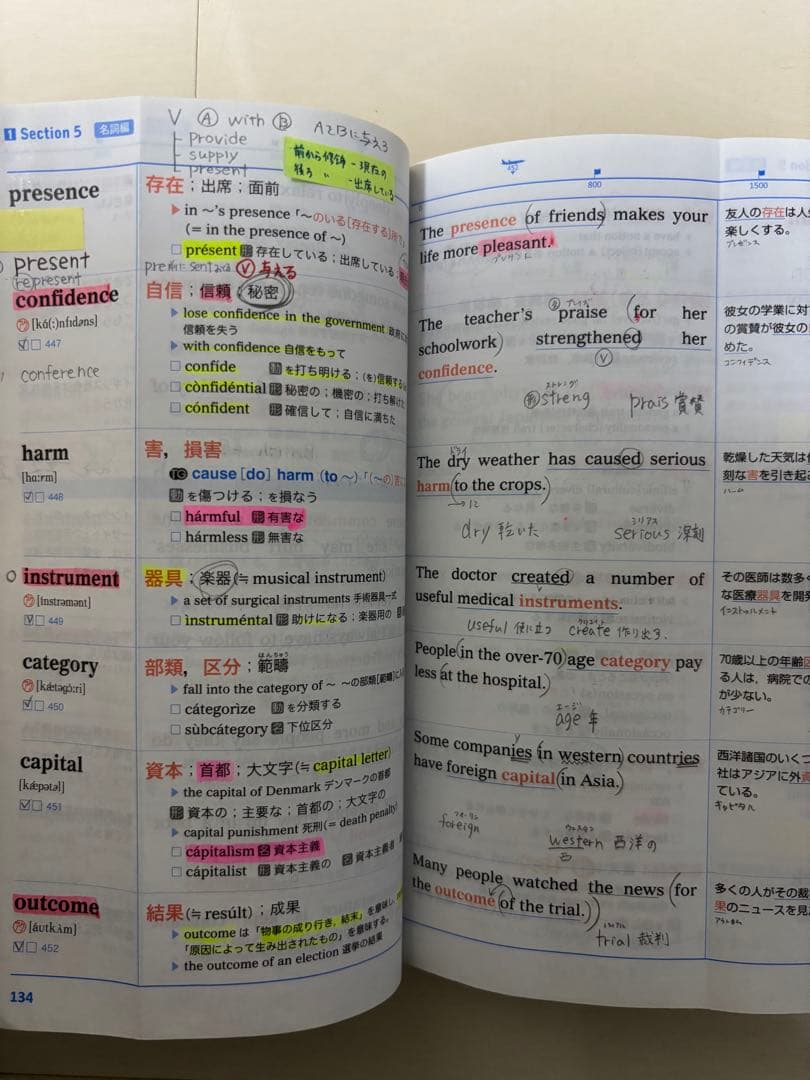 1 Section 5 名詞編
V Ⓐ with Ⓑ AにBに与える
provide
supply
present
前から修飾 - 現在の
後ろ 〃 - 出席している
presence
present
(re)present
存在；出席；面前
▶ in ～'s presence「～のいる[存在する]所で」
(= in the presence of ～)
□ présent 形 存在している；出席している
pre 前に sent おくる Ⓥ 与える
confidence
ア [kɑ́(:)nfidəns]
447
conference
自信；信頼；秘密
▶ lose confidence in the government 政府に
信頼を失う
▶ with confidence 自信をもって
□ confide 動 を打ち明ける；(を)信頼する
□ cònfidéntial 形 秘密の；機密の；打ち解けた
□ cónfident 形 確信して；自信に満ちた
harm
[hɑːrm]
448
害，損害
TG cause [do] harm (to ～)「(～の)害に
動 を傷つける；を損なう
□ hármful 形 有害な
□ hármless 形 無害な
instrument
ア [ínstrəmənt]
449
器具；楽器(≒ musical instrument)
▶ a set of surgical instruments 手術器具一式
□ ìnstruméntal 形 助けになる；楽器用の
category
ア [kǽtəgɔ̀ːri]
450
部類，区分；範疇
はんちゅう
▶ fall into the category of ～ ～の部類[範疇]に入
□ cátegorìze 動 を分類する
□ sùbcátegory 名 下位区分
capital
[kǽpətəl]
451
資本；首都；大文字(≒ capital letter)
▶ the capital of Denmark デンマークの首都
形 資本の；主要な；首都の；大文字の
▶ capital punishment 死刑(= death penalty)
□ cápitalìsm 名 資本主義
□ cápitalist 形 資本主義の 名 資本主義者
outcome
ア [áʊtkʌ̀m]
452
結果(≒ resúlt)；成果
▶ outcome は「物事の成り行き，結末」を意味し，
「原因によって生み出されたもの」を意味する。
▶ the outcome of an election 選挙の結果
134
452
800
1500
The presence (of friends) makes your
life more pleasant.
プレザント
友人の存在は人
楽しくする。
プレゼンス
The teacher's praise (for her
schoolwork) strengthened her
confidence.
Ⓥ
ストレング
streng
prais 賞賛
彼女の学業に対
の賞賛が彼女の
めた。
コンフィデンス
ドライ
The dry weather has caused serious
harm (to the crops.)
→に
dry 乾いた
シリアス
serious 深刻
乾燥した天気は
刻な害を引き起こ
ハーム
The doctor created a number of
useful medical instruments.
useful 役に立つ
クリエイト
create 作り出す.
その医師は数多く
な医療器具を開発
インストゥルメント
People (in the over-70) age category pay
less at the hospital.)
エージ
age 年
70歳以上の年齢区
る人は，病院での
が少ない。
カテゴリー
Some companies (in western) countries
have foreign capital (in Asia.)
フォーリン
foreign
ウェスタン
western 西洋の
西
西洋諸国のいくつ
社はアジアに外資
ている。
キャピタル
Many people watched the news (for
the outcome (of the trial.))
トライアル
trial 裁判
多くの人がその裁
果のニュースを見
アウトカム